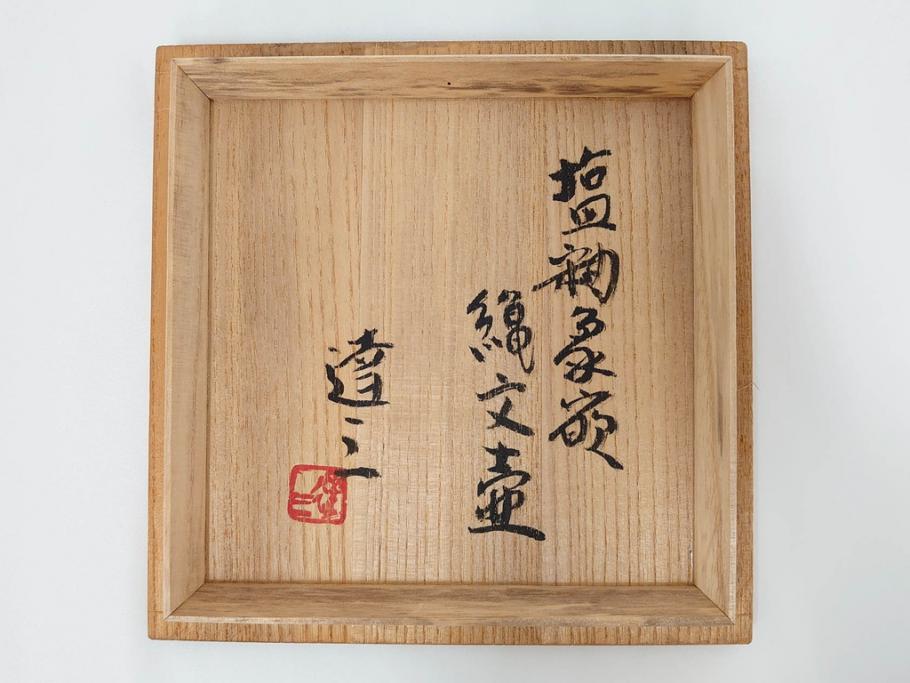 塩釉象嵌
縄文壷
達三